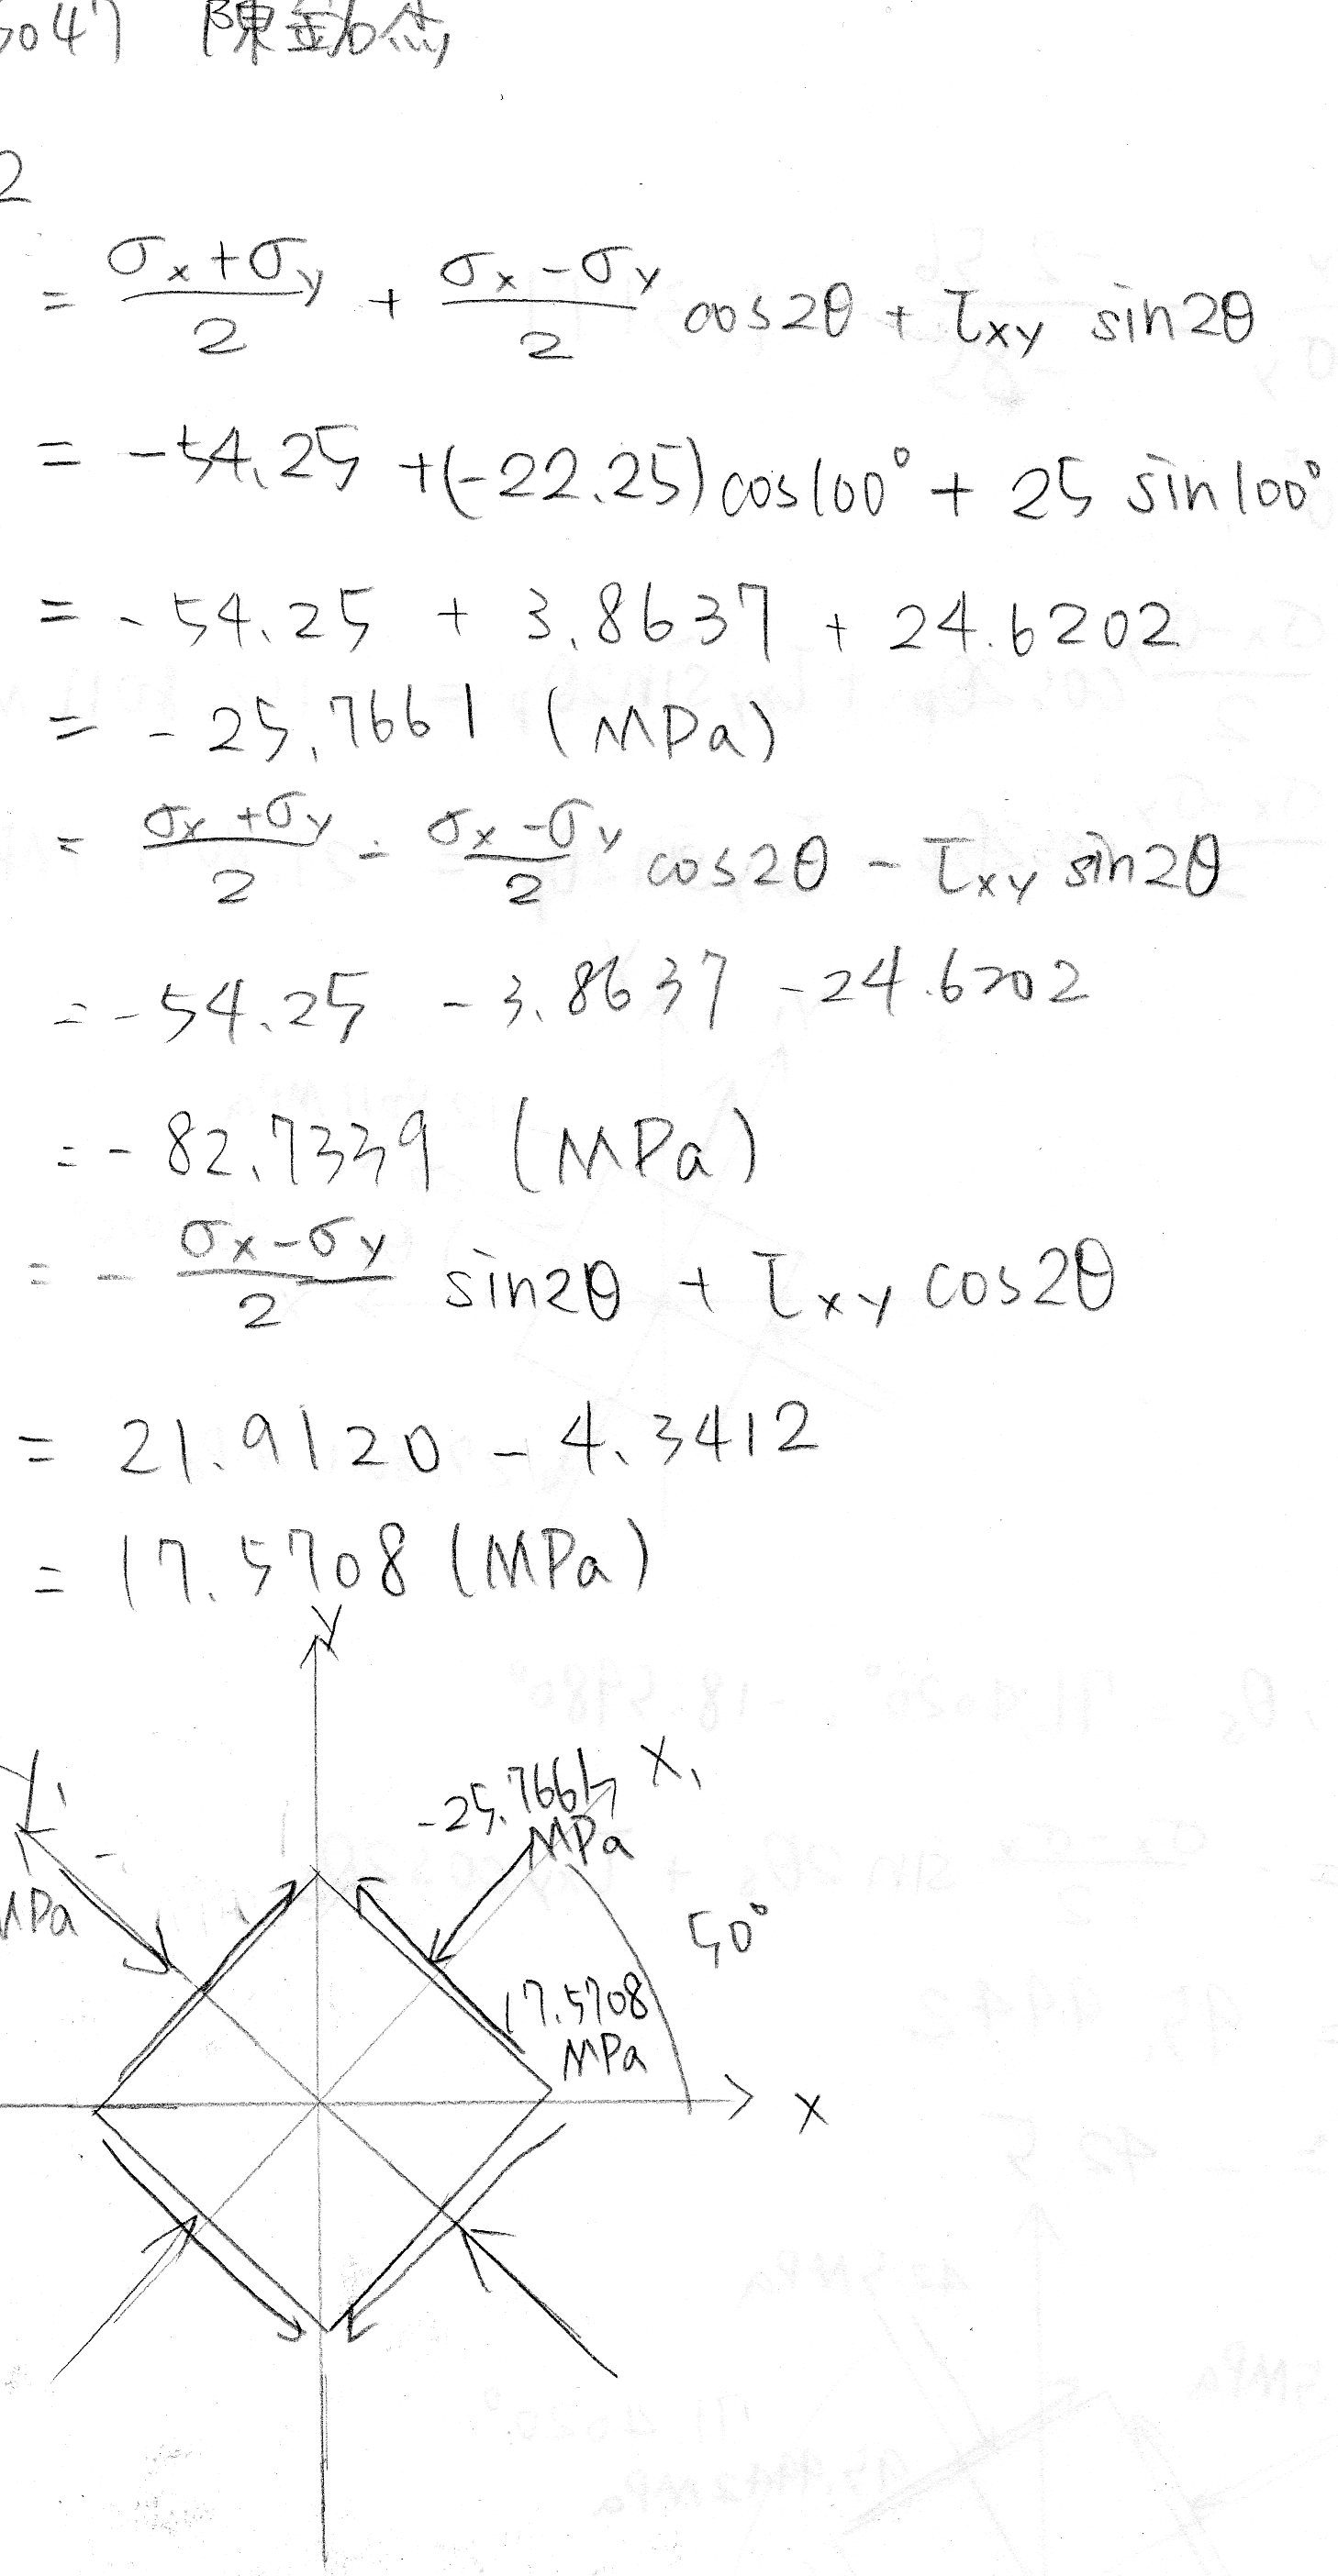 5047 陳
2
= σx+σy/2 + σx-σy/2 cos2θ + τxy sin2θ
= -54.25 +(-22.25) cos100° + 25 sin100°
= -54.25 + 3.8637 + 24.6202
= -25.7661 (MPa)
= σx+σy/2 - σx-σy/2 cos2θ - τxy sin2θ
= -54.25 - 3.8637 - 24.6202
= -82.7339 (MPa)
= - σx-σy/2 sin2θ + τxy cos2θ
= 21.9120 - 4.3412
= 17.5708 (MPa)
y
y1
-25.7661
MPa
x1
MPa
50°
17.5708
MPa
x